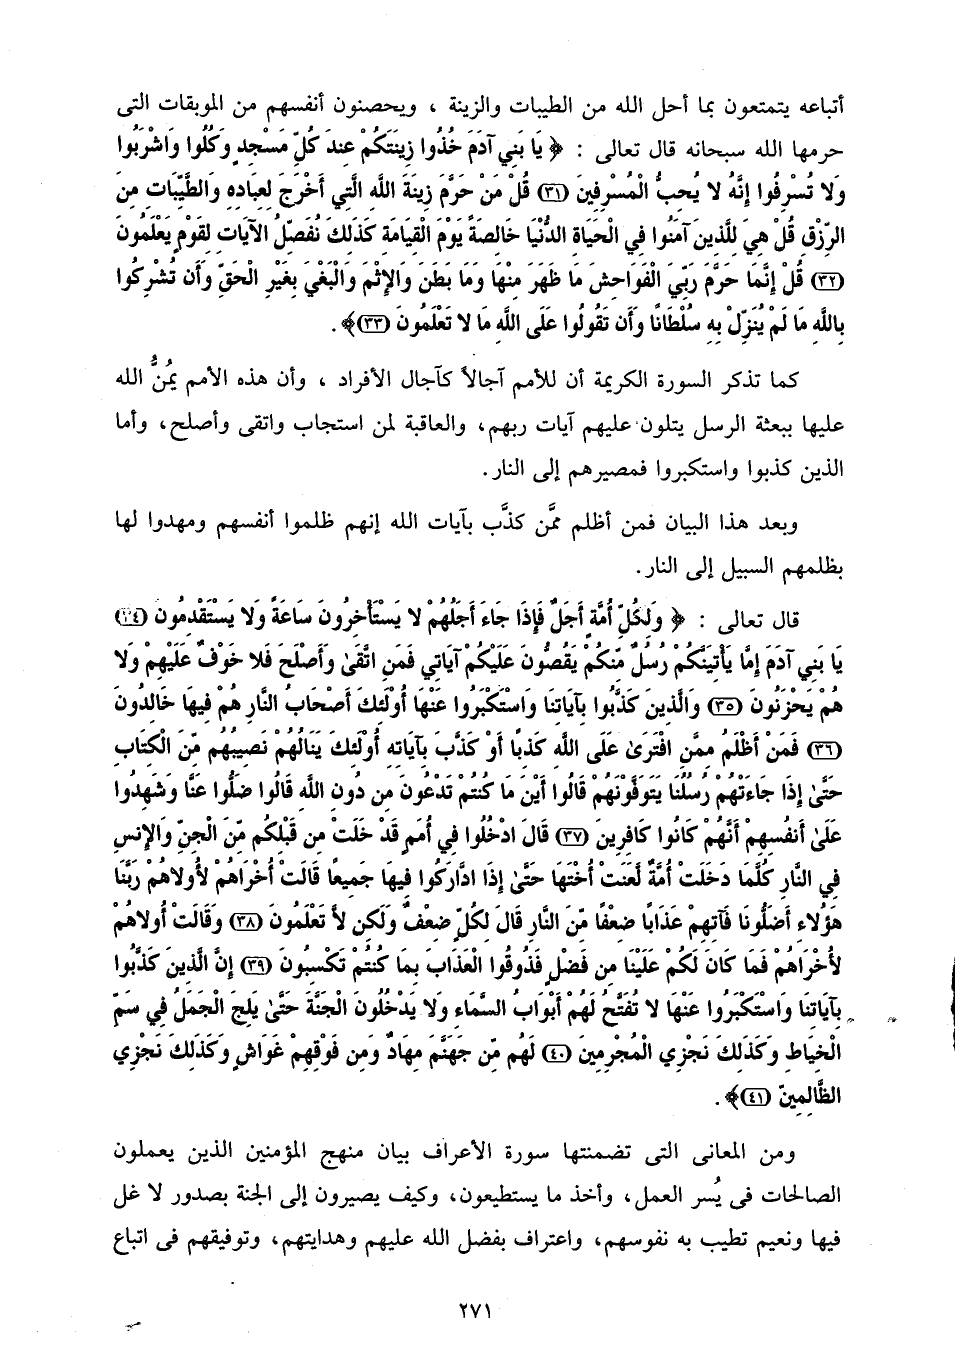 أتباعه يتمتعون بما أحل الله من الطيبات والزينة ، ويحصنون أنفسهم من الموبقات التى
حرمها الله سبحانه قال تعالى : ﴿ يَا بَنِي آدَمَ خُذُوا زِينَتَكُمْ عِندَ كُلِّ مَسْجِدٍ وَكُلُوا وَاشْرَبُوا
وَلا تُسْرِفُوا إِنَّهُ لا يُحِبُّ الْمُسْرِفِينَ (٣١) قُلْ مَنْ حَرَّمَ زِينَةَ اللَّهِ الَّتِي أَخْرَجَ لِعِبَادِهِ وَالطَّيِّبَاتِ مِنَ
الرِّزْقِ قُلْ هِيَ لِلَّذِينَ آمَنُوا فِي الْحَيَاةِ الدُّنْيَا خَالِصَةً يَوْمَ الْقِيَامَةِ كَذَلِكَ نُفَصِّلُ الآيَاتِ لِقَوْمٍ يَعْلَمُونَ
(٣٢) قُلْ إِنَّمَا حَرَّمَ رَبِّيَ الْفَوَاحِشَ مَا ظَهَرَ مِنْهَا وَمَا بَطَنَ وَالإِثْمَ وَالْبَغْيَ بِغَيْرِ الْحَقِّ وَأَن تُشْرِكُوا
بِاللَّهِ مَا لَمْ يُنَزِّلْ بِهِ سُلْطَانًا وَأَن تَقُولُوا عَلَى اللَّهِ مَا لا تَعْلَمُونَ (٣٣)﴾ .
كما تذكر السورة الكريمة أن للأمم آجالاً كآجال الأفراد ، وأن هذه الأمم يمُنُّ الله
عليها ببعثة الرسل يتلون عليهم آيات ربهم، والعاقبة لمن استجاب واتقى وأصلح، وأما
الذين كذبوا واستكبروا فمصيرهم إلى النار.
وبعد هذا البيان فمن أظلم ممَّن كذَّب بآيات الله إنهم ظلموا أنفسهم ومهدوا لها
بظلمهم السبيل إلى النار.
قال تعالى : ﴿ وَلِكُلِّ أُمَّةٍ أَجَلٌ فَإِذَا جَاءَ أَجَلُهُمْ لا يَسْتَأْخِرُونَ سَاعَةً وَلا يَسْتَقْدِمُونَ (٣٤)
يَا بَنِي آدَمَ إِمَّا يَأْتِيَنَّكُمْ رُسُلٌ مِّنكُمْ يَقُصُّونَ عَلَيْكُمْ آيَاتِي فَمَنِ اتَّقَىٰ وَأَصْلَحَ فَلا خَوْفٌ عَلَيْهِمْ وَلا
هُمْ يَحْزَنُونَ (٣٥) وَالَّذِينَ كَذَّبُوا بِآيَاتِنَا وَاسْتَكْبَرُوا عَنْهَا أُوْلَئِكَ أَصْحَابُ النَّارِ هُمْ فِيهَا خَالِدُونَ
(٣٦) فَمَنْ أَظْلَمُ مِمَّنِ افْتَرَىٰ عَلَى اللَّهِ كَذِبًا أَوْ كَذَّبَ بِآيَاتِهِ أُوْلَئِكَ يَنَالُهُمْ نَصِيبُهُم مِّنَ الْكِتَابِ
حَتَّىٰ إِذَا جَاءَتْهُمْ رُسُلُنَا يَتَوَفَّوْنَهُمْ قَالُوا أَيْنَ مَا كُنتُمْ تَدْعُونَ مِن دُونِ اللَّهِ قَالُوا ضَلُّوا عَنَّا وَشَهِدُوا
عَلَىٰ أَنفُسِهِمْ أَنَّهُمْ كَانُوا كَافِرِينَ (٣٧) قَالَ ادْخُلُوا فِي أُمَمٍ قَدْ خَلَتْ مِن قَبْلِكُم مِّنَ الْجِنِّ وَالإِنسِ
فِي النَّارِ كُلَّمَا دَخَلَتْ أُمَّةٌ لَّعَنَتْ أُخْتَهَا حَتَّىٰ إِذَا ادَّارَكُوا فِيهَا جَمِيعاً قَالَتْ أُخْرَاهُمْ لأُولاهُمْ رَبَّنَا
هَؤُلاءِ أَضَلُّونَا فَآتِهِمْ عَذَابًا ضِعْفًا مِّنَ النَّارِ قَالَ لِكُلٍّ ضِعْفٌ وَلَكِن لاَّ تَعْلَمُونَ (٣٨) وَقَالَتْ أُولاهُمْ
لأُخْرَاهُمْ فَمَا كَانَ لَكُمْ عَلَيْنَا مِن فَضْلٍ فَذُوقُوا الْعَذَابَ بِمَا كُنتُمْ تَكْسِبُونَ (٣٩) إِنَّ الَّذِينَ كَذَّبُوا
بِآيَاتِنَا وَاسْتَكْبَرُوا عَنْهَا لا تُفَتَّحُ لَهُمْ أَبْوَابُ السَّمَاءِ وَلا يَدْخُلُونَ الْجَنَّةَ حَتَّىٰ يَلِجَ الْجَمَلُ فِي سَمِّ
الْخِيَاطِ وَكَذَلِكَ نَجْزِي الْمُجْرِمِينَ (٤٠) لَهُم مِّن جَهَنَّمَ مِهَادٌ وَمِن فَوْقِهِمْ غَوَاشٍ وَكَذَلِكَ نَجْزِي
الظَّالِمِينَ (٤١)﴾ .
ومن المعانى التى تضمنتها سورة الأعراف بيان منهج المؤمنين الذين يعملون
الصالحات فى يُسر العمل، وأخذ ما يستطيعون، وكيف يصيرون إلى الجنة بصدور لا غل
فيها ونعيم تطيب به نفوسهم، واعتراف بفضل الله عليهم وهدايتهم، وتوفيقهم فى اتباع
٢٧١